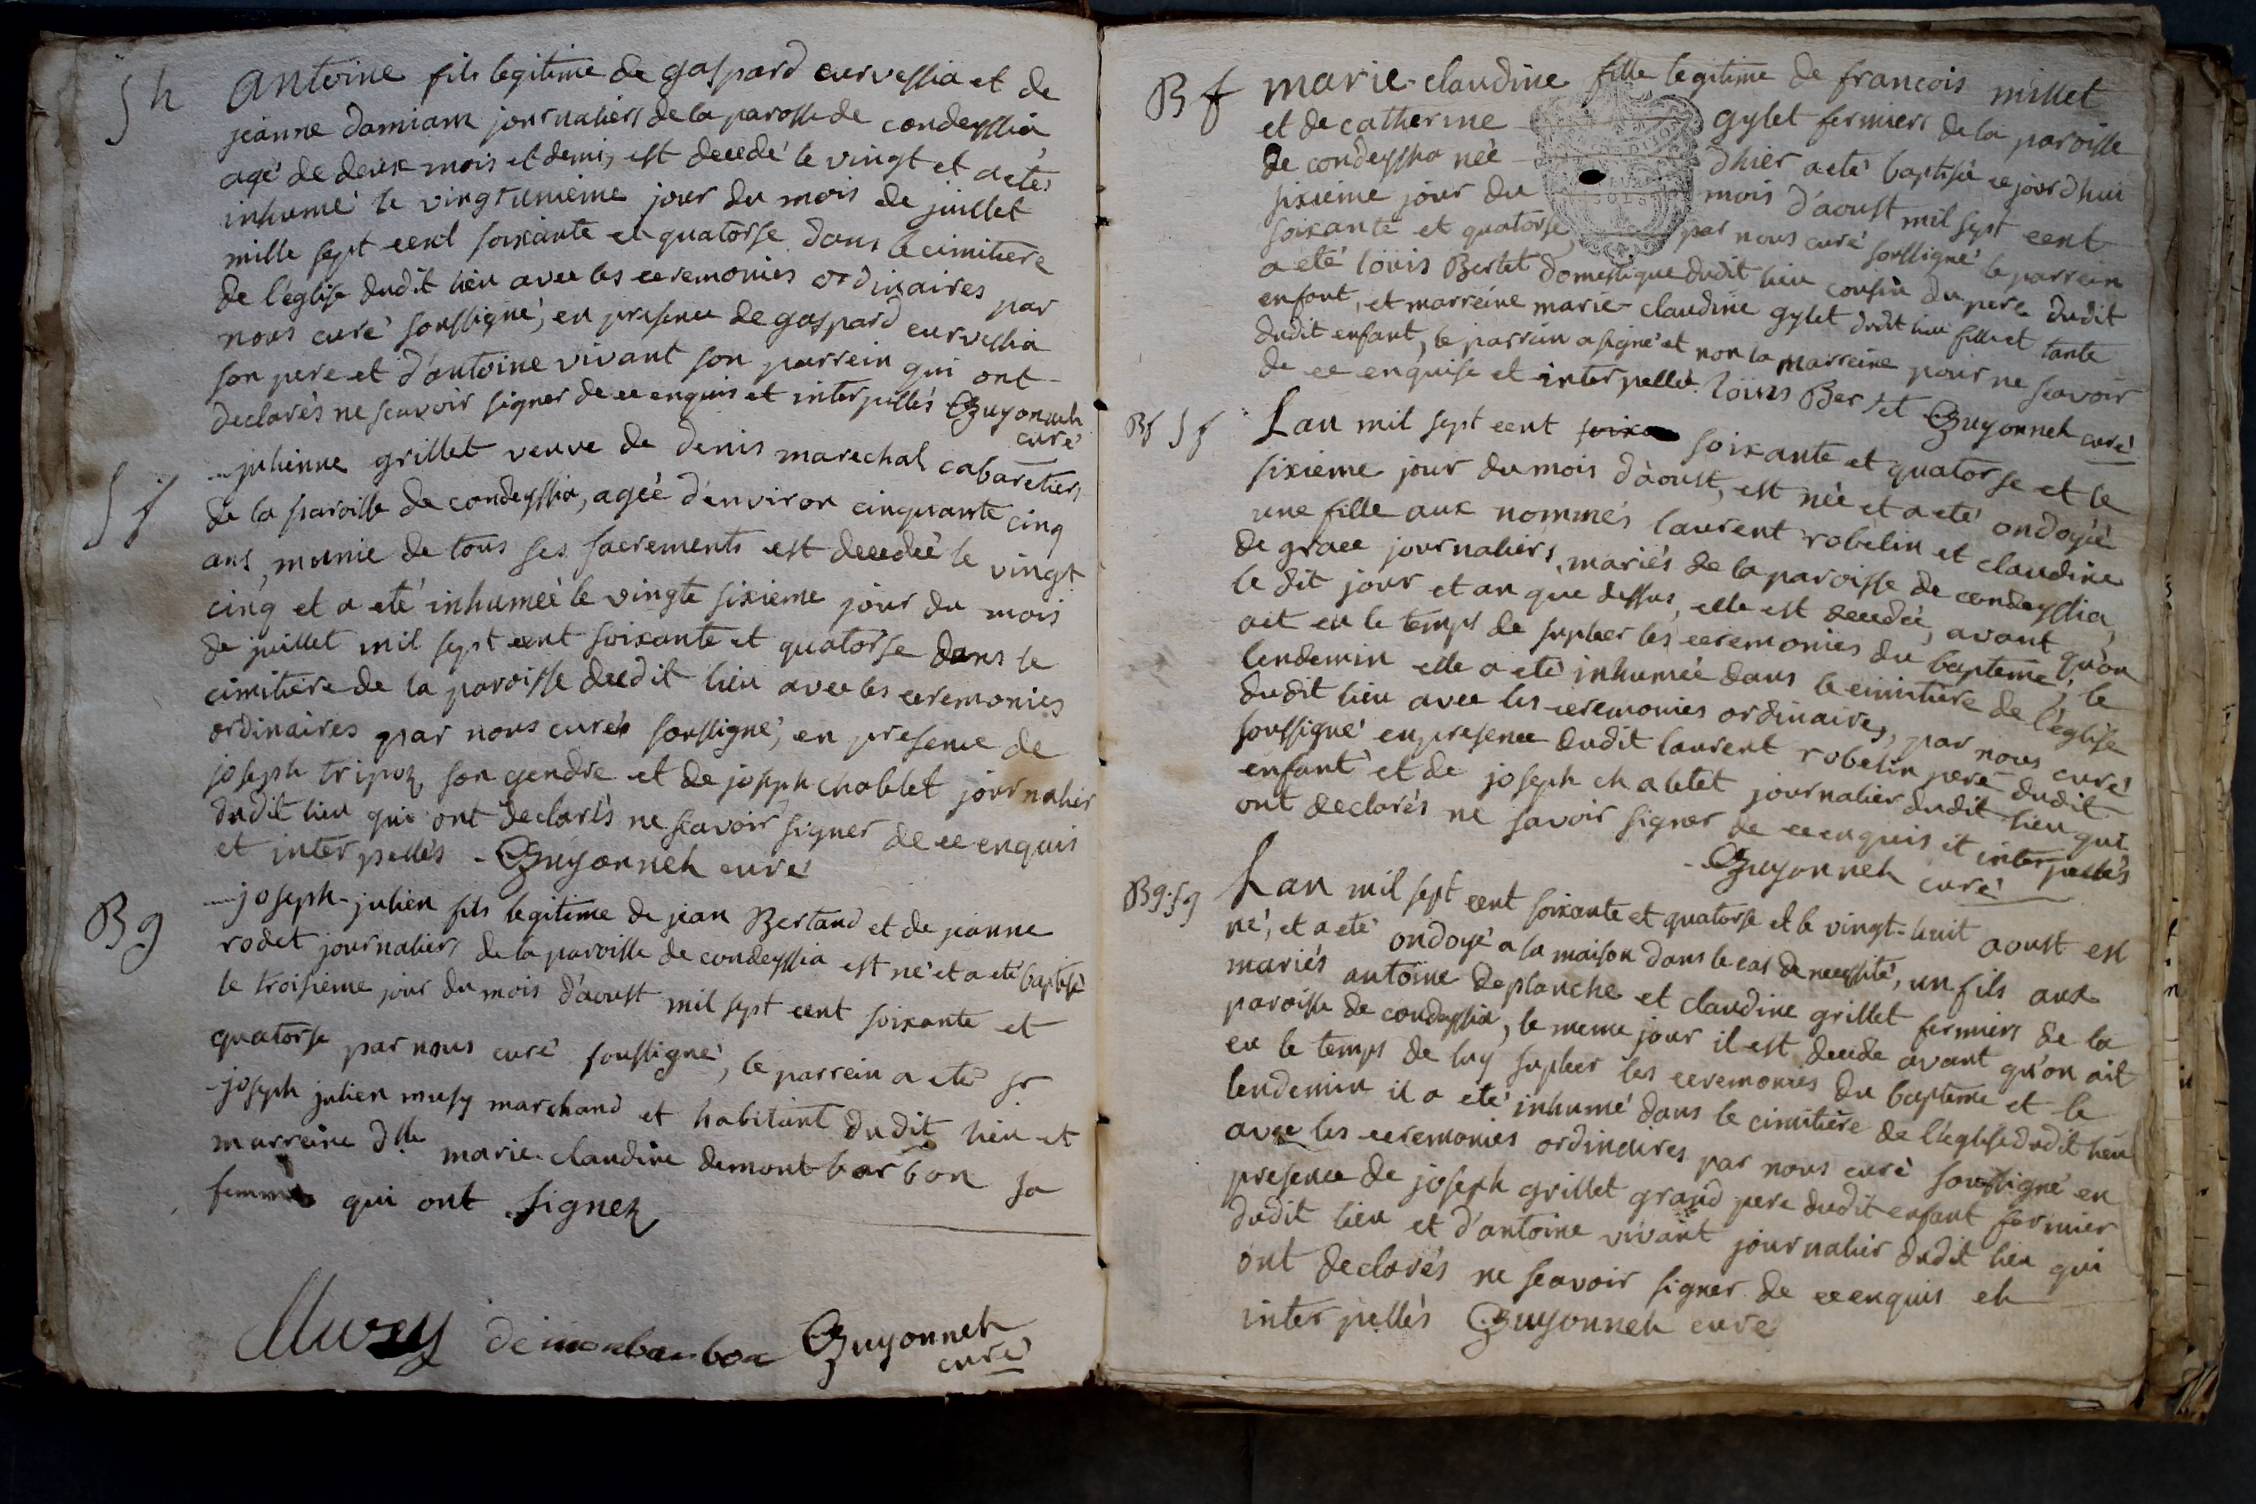 Sh
antoine fils legitime de gaspard curvessia et de
jeanne damiam journaliers de la parosse de condeyssia
agé de deux mois et demi, est decedé le vingt et a eté
inhumé le vingt unieme jour du mois de juillet
mille sept cent soixante et quatorse dans le cimitiere
de l'eglise dudit lieu avec les ceremonies ordinaires par
nous curé soussigné, en presence de gaspard curvessia
son pere et d'antoine vivant son parrein qui ont
declarés ne scavoir signer de ce enquis et interpellés Guyonneh
curé
Sf
julienne grillet veuve de denis marechal cabaretiers
de la paroisse de condeyssia, ageé d'environ cinquante cinq
ans, munie de tous ses sacrements est decedeé le vingt
cinq et a eté inhumeé le vingte sixieme jour du mois
de juillet mil sept cent soixante et quatorse dans le
cimitiere de la paroisse dudit lieu avec les ceremonies
ordinaires par nous curé soussigné, en presence de
joseph tripoz son gendre et de joseph chablet journalier
dudit lieu qui ont declarés ne scavoir signer de ce enquis
et interpellés - Guyonneh curé
Bg
joseph-julien fils legitime de jean Bertand et de jeanne
rodet journaliers de la paroisse de condeyssia est né et a eté baptisé
le troisieme jour du mois d'aoust mil sept cent soixante et
quatorse par nous curé soussigné, le parrein a eté sr
joseph julien musy marchand et habitant dudit lieu et
marreine dlle marie-claudine demontbarbon sa
femme qui ont signez
Muzy demonbarbon Guyonneh
curé
Bf
marie-claudine fille legitime de francois millet
et de catherine gylet fermiers de la paroisse
de condeyssia neé dhier a eté baptisée ce jourd'hui
sixieme jour du mois d'aoust mil sept cent
soixante et quatorse, par nous curé soussigné le parrein
a eté loüis Bertet domestique dudit lieu cousin du pere dudit
enfant, et marreine marie-claudine gylet dudit lieu fille et tante
dudit enfant, le parrain a signé et non la marreine pour ne scavoir
de ce enquise et interpellée loüis Bertet Guyonneh curé
Bf Sf
Lan mil sept cent soixa soixante et quatorse et le
sixieme jour du mois d'aoust, est née et a eté ondoyée
une fille aux nommés laurent robelin et claudine
de grace journaliers, mariés de la paroisse de condeyssia,
le dit jour et an que dessus, elle est decedée, avant qu'on
ait eu le temps de supleer les ceremonies du bapteme, le
lendemin elle a eté inhumée dans le cimitiere de l'eglise
dudit lieu avec les ceremonies ordinaires, par nous curé
soussigné en presence dudit laurent robelin pere dudit
enfant et de joseph chabletet journalier dudit lieu qui
ont declarés ne savoir signer de ce enquis et interpellés
- Guyonneh curé
Bg.Sg
Lan mil sept cent soixante et quatorse et le vingt-huit aoust est
né, et a eté ondoyé a la maison dans le cas de necessité, un fils aux
mariés antoine deplanche et claudine grillet fermiers de la
paroisse de condeyssia, le meme jour il est decede avant qu'on ait
eu le temps de luy supleer les ceremonies du bapteme et le
lendemin il a eté inhumé dans le cimitiere de l'eglise dudit lieu
avec les ceremonies ordinaires par nous curé soussigné en
presence de joseph grillet grand pere dudit enfant fermier
dudit lieu et d'antoine vivant journalier dudit lieu qui
ont declarés ne scavoir signer de ce enquis et
interpellés Guyonneh curé